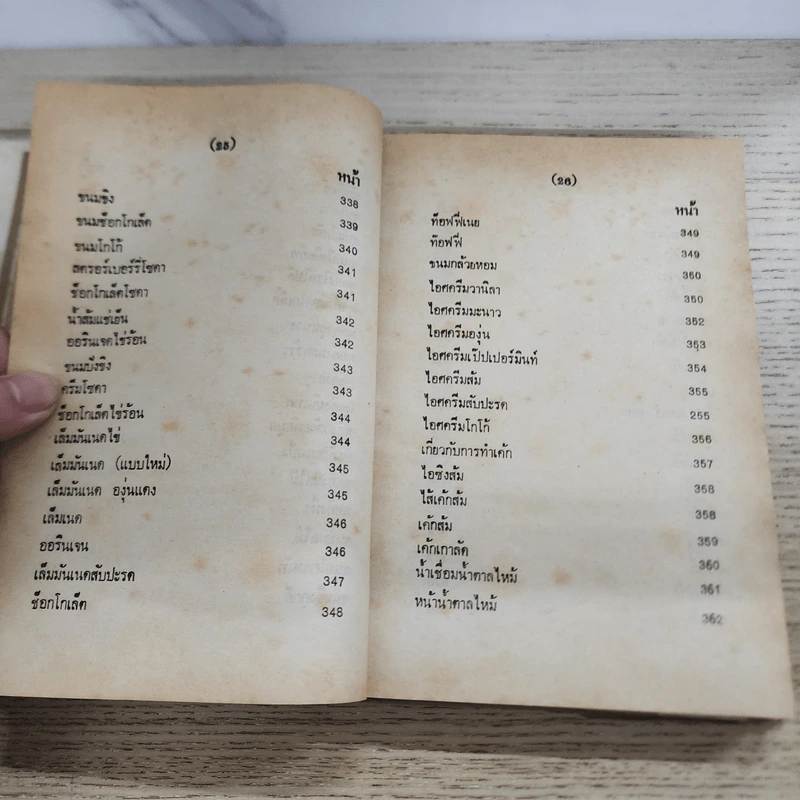 (25)
หน้า
ขนมขิง 338
ขนมช็อกโกเล็ต 339
ขนมโกโก้ 340
สตรอร์เบอร์รี่โซดา 341
ช็อกโกเล็ตโซดา 341
น้ำส้มแช่เย็น 342
ออรินเจดไข่ร้อน 342
ขนมปังขิง 343
ครีมโซดา 343
ช็อกโกเล็ตไข่ร้อน 344
เล็มมันเนดไข่ 344
เล็มมันเนด (แบบใหม่) 345
เล็มมันเนด องุ่นแดง 345
เล็มเนด 346
ออรินเจน 346
เล็มมันเนดสับปะรด 347
ช็อกโกเล็ต 348
(26)
หน้า
ท๊อฟฟี่เนย 349
ท๊อฟฟี่ 349
ขนมกล้วยหอม 350
ไอศครีมวานิลา 350
ไอศครีมมะนาว 352
ไอศครีมองุ่น 353
ไอศครีมเป๊ปเปอร์มินท์ 354
ไอศครีมส้ม 355
ไอศครีมสับปะรด 255
ไอศครีมโกโก้ 356
เกี่ยวกับการทำเค้ก 357
ไอซิงส้ม 358
ไส้เค้กส้ม 358
เค้กส้ม 359
เค้กเกาลัด 360
น้ำเชื่อมน้ำตาลไหม้ 361
หน้าน้ำตาลไหม้ 362